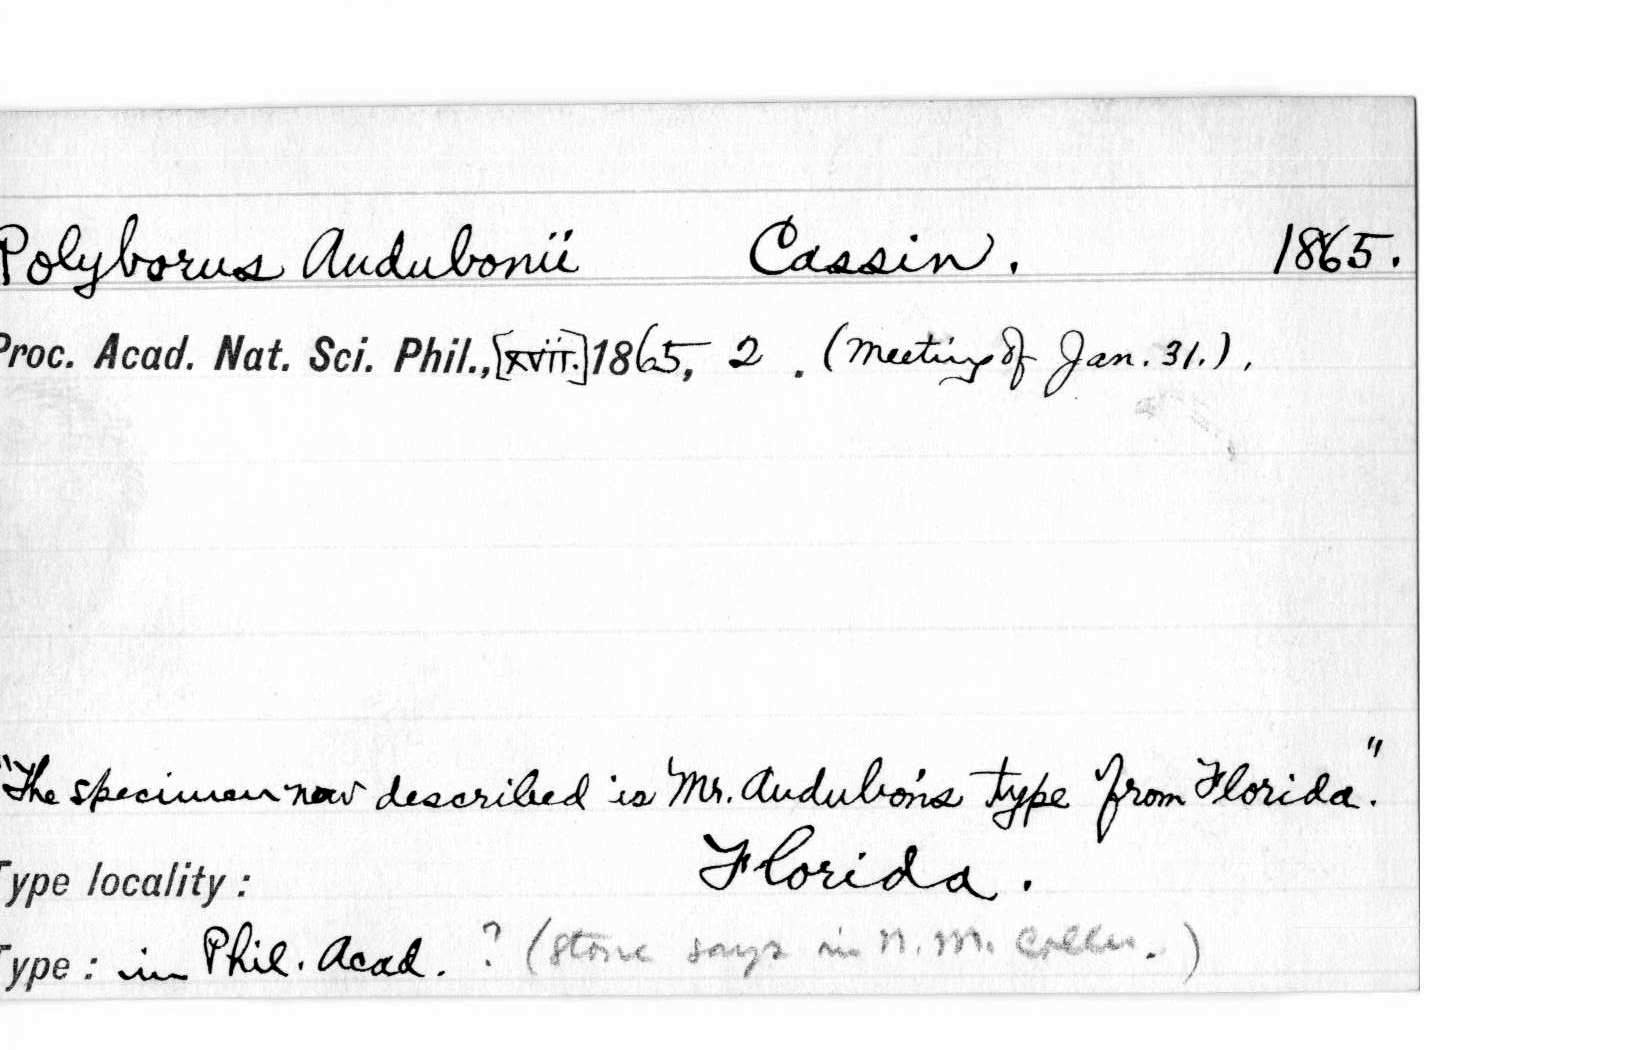 Polyborus Audubonii Cassin. 1865.
Proc. Acad. Nat. Sci. Phil., [XVII.] 1865, 2. (Meeting of Jan. 31.),
"The specimen now described is Mr. Audubon's type from Florida."
Type locality: Florida.
Type: in Phil. Acad. ? (Stone says in N.M. Colln.)